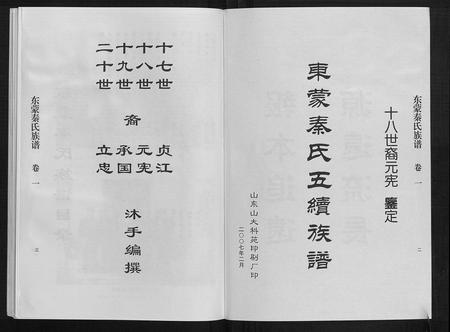 东蒙秦氏族谱 卷一
二
十八世裔元宪 鑒定
東蒙秦氏五續族譜
山东山大科苑印刷厂印
二〇〇七年二月
十七世 贞江
十八世 元宪
十九世 裔 承国
二十世 立忠
沐手编撰
东蒙秦氏族谱 卷一
三